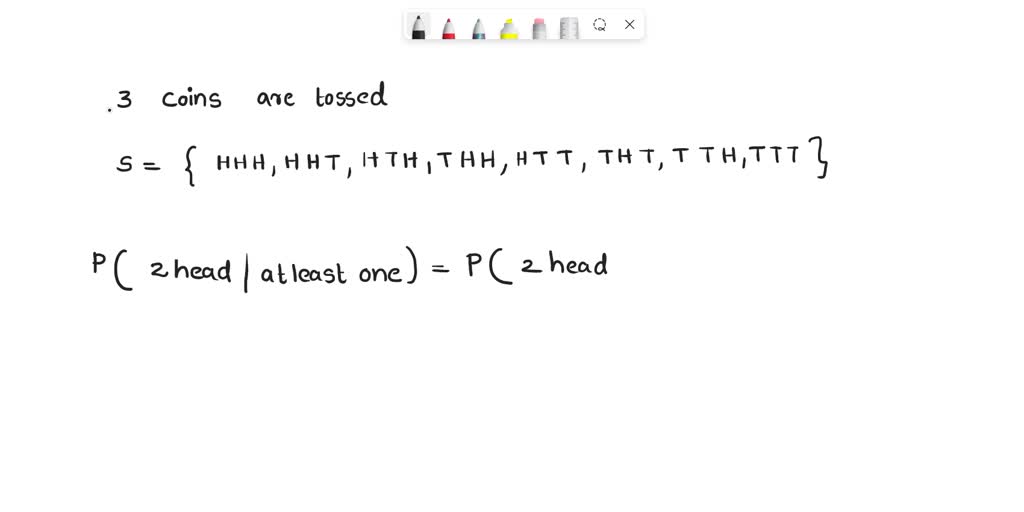 .3 coins are tossed
S = { HHH, HHT, HTH, THH, HTT, THT, TTH, TTT }
P( 2 head | atleast one ) = P( 2 head